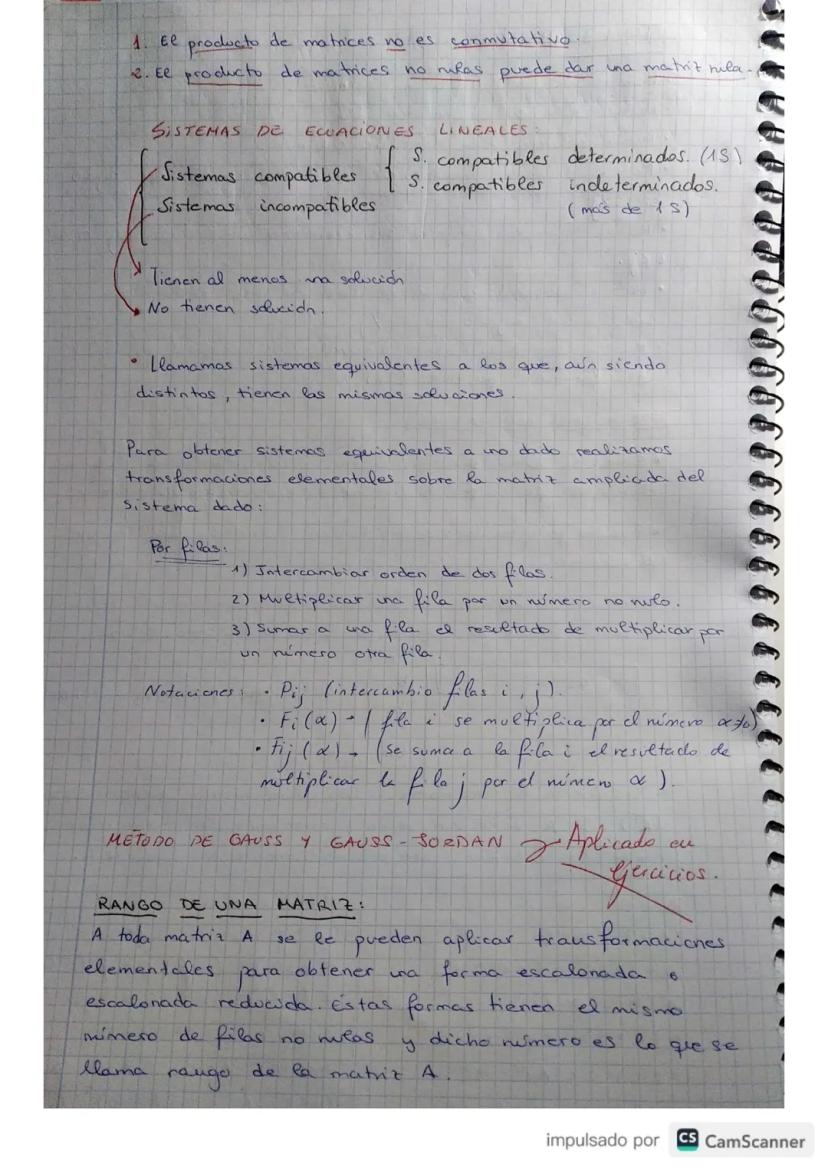 1. El producto de matrices no es conmutativo.
2. El producto de matrices no nulas puede dar una matriz nula.
SISTEMAS DE ECUACIONES LINEALES:
Sistemas compatibles { S. compatibles determinados. (1S)
S. compatibles indeterminados.
Sistemas incompatibles (más de 1S)
Tienen al menos una solución
No tienen solución.
• Llamamos sistemas equivalentes a los que, aún siendo
distintos, tienen las mismas soluciones.
Para obtener sistemas equivalentes a uno dado realizamos
transformaciones elementales sobre la matriz ampliada del
sistema dado:
Por filas:
1) Intercambiar orden de dos filas.
2) Multiplicar una fila por un número no nulo.
3) Sumar a una fila el resultado de multiplicar por
un número otra fila.
Notaciones: · Pij (intercambio filas i, j).
· Fi(α) - (fila i se multiplica por el número α≠0)
· Fij(α) - (se suma a la fila i el resultado de
multiplicar la fila j por el número α).
MÉTODO DE GAUSS Y GAUSS-JORDAN → Aplicado en
ejercicios.
RANGO DE UNA MATRIZ:
A toda matriz A se le pueden aplicar transformaciones
elementales para obtener una forma escalonada o
escalonada reducida. Estas formas tienen el mismo
número de filas no nulas y dicho número es lo que se
llama rango de la matriz A.
impulsado por CS CamScanner